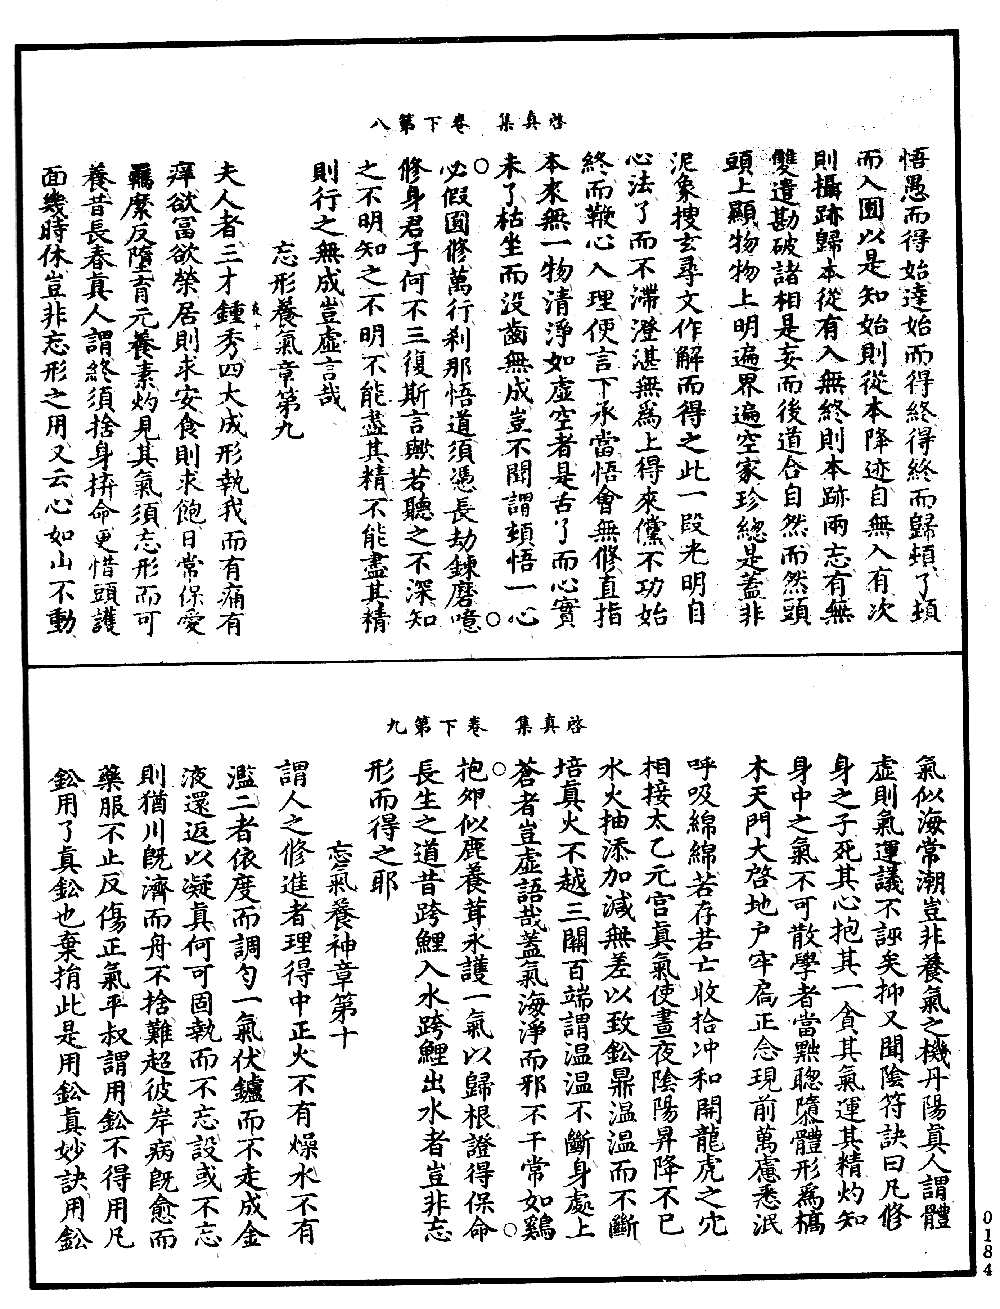 啓真集　卷下第八
悟愚而得始達始而得終得終而歸頓了頓
而入圓以是知始則從本降迹自無入有次
則攝跡歸本從有入無終則本跡兩忘有無
雙遣勘破諸相是妄而後道合自然而然頭
頭上顯物物上明遍界遍空家珍緫是蓋非
泥象搜玄尋文作解而得之此一段光明自
心法了而不滯澄湛無爲上得來儻不功始
終而鞭心入理便言下承當悟會無修直指
本來無一物清淨如虚空者是舌了而心實
未了枯坐而没齒無成豈不聞謂頓悟一心
必假圓修萬行刹那悟道須憑長劫鍊磨噫
修身君子何不三復斯言歟若聽之不深知
之不明知之不明不能盡其精不能盡其精
則行之無成豈虚言哉
忘形養氣章第九
夫人者三才鍾秀四大成形執我而有痛有
痒欲冨欲榮居則求安食則求飽日常保愛
羈縻反墮育元養素灼見其氣須忘形而可
養昔長春真人謂終須捨身拚命更惜頭護
面幾時休豈非忘形之用又云心如山不動
啓真集　卷下第九
氣似海常潮豈非養氣之機丹陽真人謂體
虚則氣運議不誣矣抑又聞陰符訣曰凡修
身之子死其心抱其一貪其氣運其精灼知
身中之氣不可散學者當黜聰隳體形爲槁
木天門大啓地户牢扃正念現前萬慮悉泯
呼吸綿綿若存若亡收拾冲和開龍虎之穴
相接太乙元宫真氣使晝夜陰陽昇降不已
水火抽添加減無差以致鈆鼎温温而不斷
培真火不越三關百端謂温温不斷身處上
蒼者豈虚語哉蓋氣海淨而邪不干常如鷄
抱卵似鹿養茸永護一氣以歸根證得保命
長生之道昔跨鯉入水跨鯉出水者豈非忘
形而得之耶
忘氣養神章第十
謂人之修進者理得中正火不有燥水不有
濫二者依度而調匀一氣伏鑪而不走成金
液還返以凝真何可固執而不忘設或不忘
則猶川旣濟而舟不捨難超彼岸病旣愈而
藥服不止反傷正氣平叔謂用鈆不得用凡
鈆用了真鈆也棄捐此是用鈆真妙訣用鈆
0184